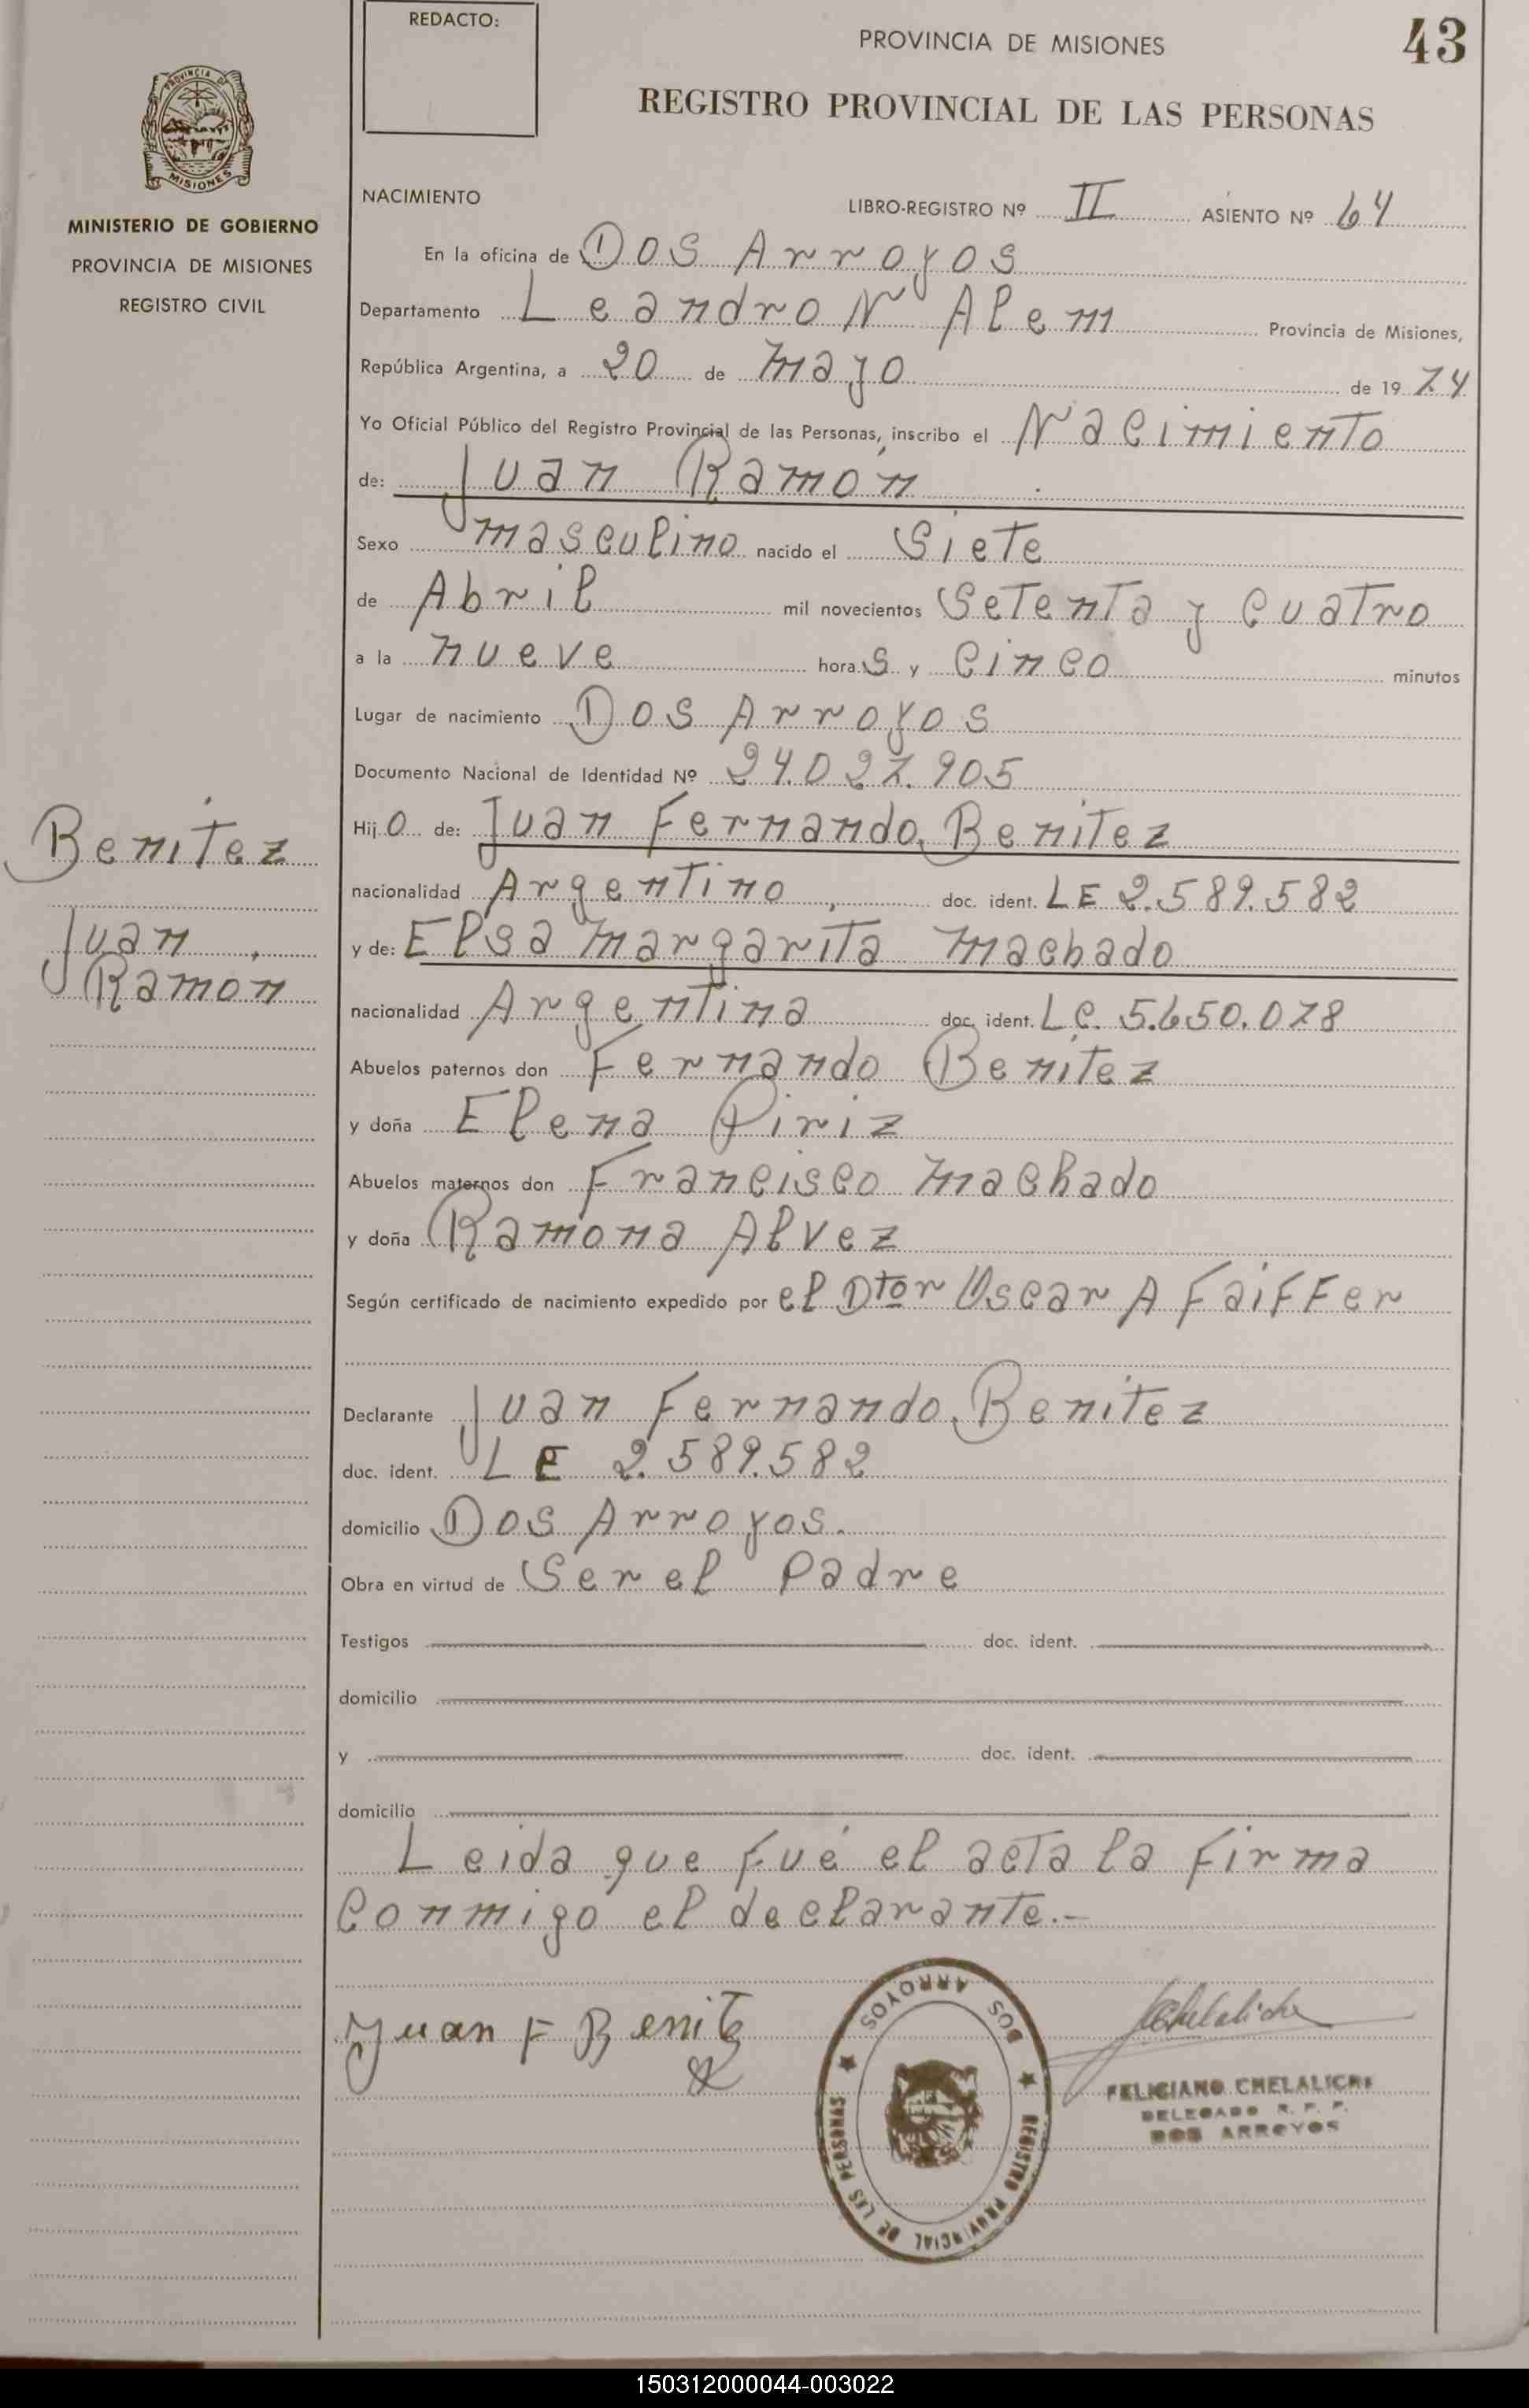 REDACTO:
PROVINCIA DE MISIONES
43
REGISTRO PROVINCIAL DE LAS PERSONAS
PROVINCIA DE
MISIONES
MINISTERIO DE GOBIERNO
PROVINCIA DE MISIONES
REGISTRO CIVIL
NACIMIENTO
LIBRO-REGISTRO Nº II ASIENTO Nº 64
En la oficina de Dos Arroyos
Departamento Leandro N Alem Provincia de Misiones,
República Argentina, a 20 de mayo de 1974
Yo Oficial Público del Registro Provincial de las Personas, inscribo el Nacimiento
de: Juan Ramon
Sexo masculino nacido el Siete
de Abril mil novecientos Setenta y cuatro
a la nueve horas y cinco minutos
Lugar de nacimiento Dos Arroyos
Documento Nacional de Identidad Nº 24.027.905
Hijo de: Juan Fernando Benitez
nacionalidad Argentino, doc. ident. LE 2.589.582
y de: Elsa Margarita Machado
nacionalidad Argentina doc. ident. L.C. 5.650.078
Abuelos paternos don Fernando Benitez
y doña Elena Piriz
Abuelos maternos don Francisco Machado
y doña Ramona Alvez
Según certificado de nacimiento expedido por el Dtor Oscar A Faiffer
Benitez
Juan
Ramon
Declarante Juan Fernando Benitez
doc. ident. LE 2.589.582
domicilio Dos Arroyos.
Obra en virtud de Ser el Padre
Testigos doc. ident.
domicilio
y doc. ident.
domicilio
Leida que fué el acta la firma
conmigo el declarante.-
Juan F Benitez
DOS ARROYOS
REGISTRO PROVINCIAL DE LAS PERSONAS
FELICIANO CHELALICHE
DELEGADO R. P. P.
DOS ARROYOS
150312000044-003022